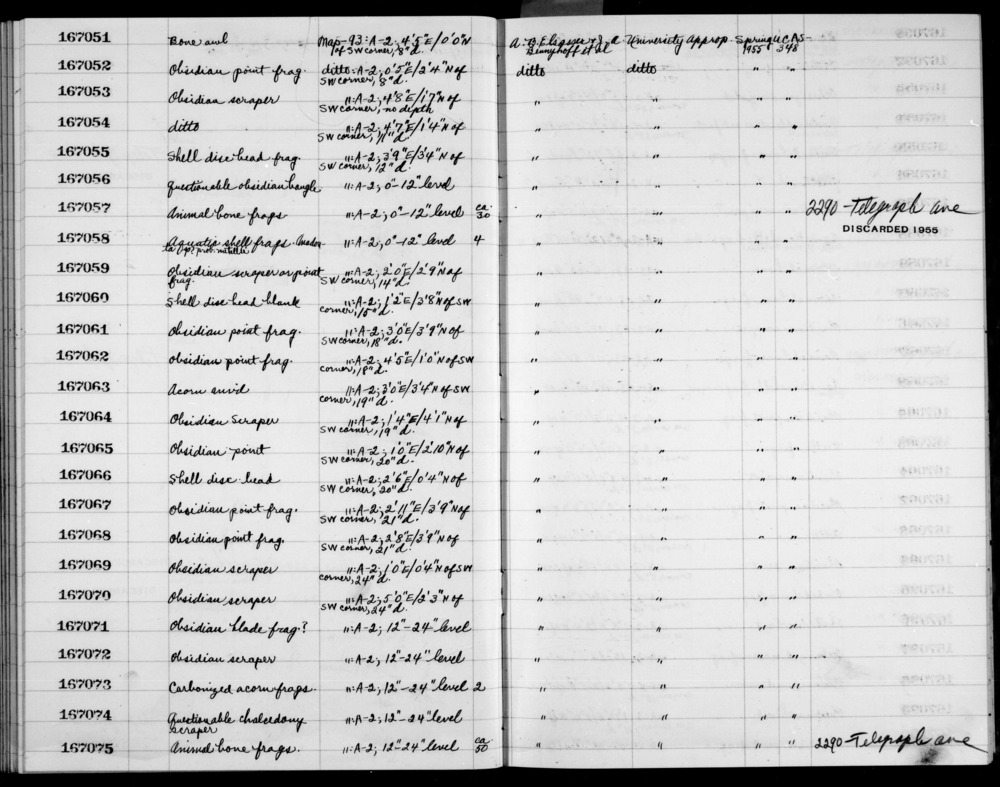 167051 Bone awl Map-93: A-2; 4'5"E/0'0"N of SW corner, 8"d. A. B. Elsasser & J. A. Bennyhoff et al University Approp. Spring 1955 UCAS-348
167052 Obsidian point frag. ditto: A-2; 0'5"E/2'4"N of SW corner, 8"d. ditto ditto
167053 Obsidian scraper ": A-2; 4'8"E/1'7"N of SW corner, no depth " " " "
167054 ditto ": A-2; 4'7"E/1'4"N of SW corner, 11"d. " " " "
167055 Shell disc bead frag. ": A-2; 3'9"E/3'4"N of SW corner, 12"d. " " " "
167056 Questionable obsidian bangle ": A-2; 0"-12" level " " " "
167057 Animal bone frags ": A-2; 0"-12" level ca. 30 " " " " 2290-Telegraph ave
DISCARDED 1955
167058 Aquatic shell frags. ": A-2; 0"-12" level 4 " " " "
167059 Obsidian scraper or point frag. ": A-2; 2'0"E/2'9"N of SW corner, 14"d. " " " "
167060 Shell disc bead blank ": A-2; 1'2"E/3'8"N of SW corner, 15"d. " " " "
167061 Obsidian point frag. ": A-2; 3'0"E/3'9"N of SW corner, 18"d. " " " "
167062 Obsidian point frag. ": A-2; 4'5"E/1'0"N of SW corner, 18"d. " " " "
167063 Acorn ": A-2; 3'0"E/3'4"N of SW corner, 19"d. " " " "
167064 Obsidian Scraper ": A-2; 1'4"E/4'1"N of SW corner, 19"d. " " " "
167065 Obsidian point ": A-2; 1'0"E/2'10"N of SW corner, 20"d. " " " "
167066 Shell disc bead ": A-2; 2'6"E/0'4"N of SW corner, 20"d. " " " "
167067 Obsidian point frag. ": A-2; 2'11"E/3'9"N of SW corner, 21"d. " " " "
167068 Obsidian point frag. ": A-2; 2'8"E/3'9"N of SW corner, 21"d. " " " "
167069 Obsidian scraper ": A-2; 1'0"E/0'4"N of SW corner, 24"d. " " " "
167070 Obsidian scraper ": A-2; 5'0"E/2'3"N of SW corner, 24"d. " " " "
167071 Obsidian blade frag.? ": A-2; 12"-24" level " " " "
167072 Obsidian scraper ": A-2; 12"-24" level " " " "
167073 Carbonized acorn frags. ": A-2; 12"-24" level 2 " " " "
167074 Questionable chalcedony scraper ": A-2; 12"-24" level " " " "
167075 Animal bone frags. ": A-2; 12"-24" level ca. 50 " " " " 2290-Telegraph ave